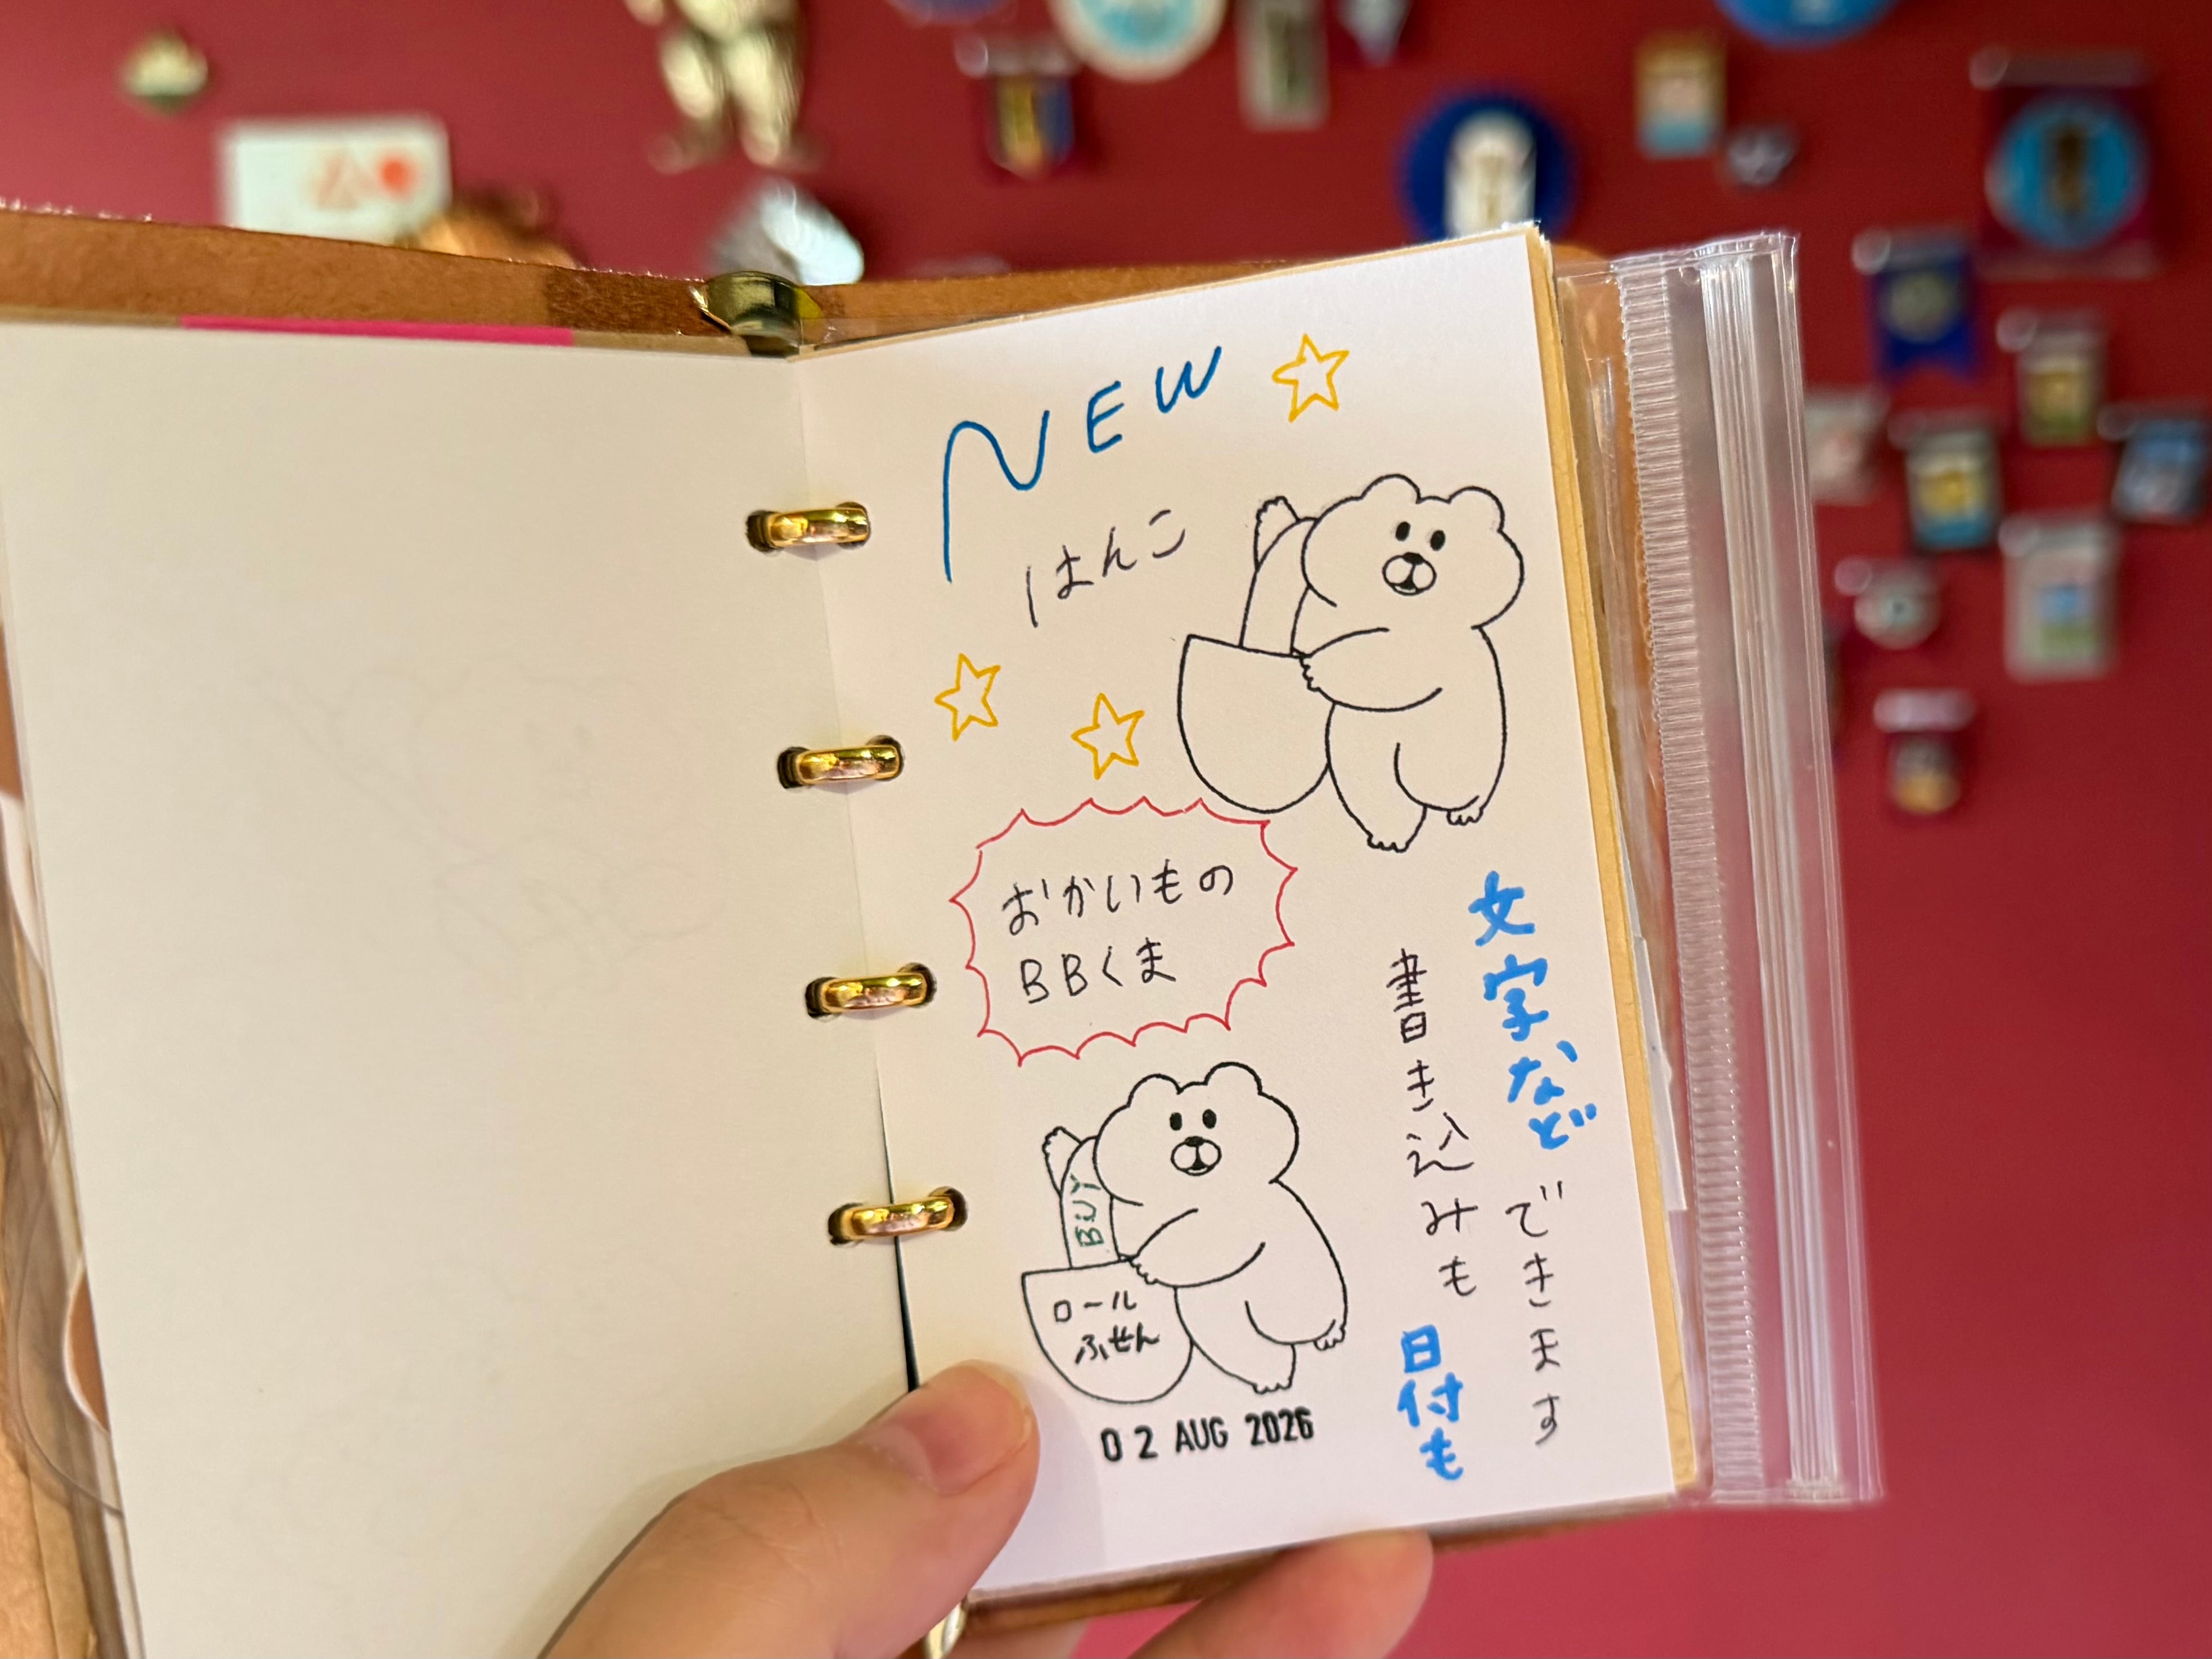 NEW
はんこ
おかいもの
BBくま
文字など
書き込みも
できます
日付も
BUY
ロール
ふせん
02 AUG 2026